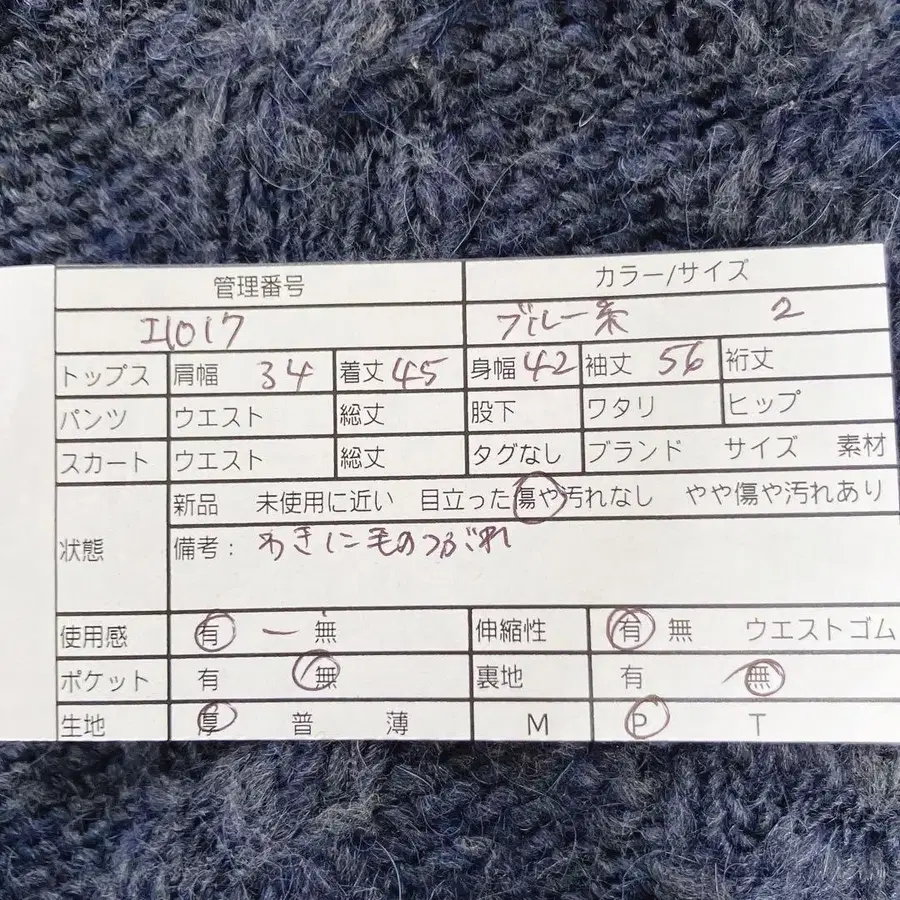 管理番号 カラー/サイズ
エ1017 ブルー系 2
トップス 肩幅 34 着丈 45 身幅 42 袖丈 56 裄丈
パンツ ウエスト 総丈 股下 ワタリ ヒップ
スカート ウエスト 総丈 タグなし ブランド サイズ 素材
新品 未使用に近い 目立った傷や汚れなし やや傷や汚れあり
状態 備考: わきに毛のつぶれ
使用感 有 ー 無 伸縮性 有 無 ウエストゴム
ポケット 有 無 裏地 有 無
生地 厚 普 薄 M P T